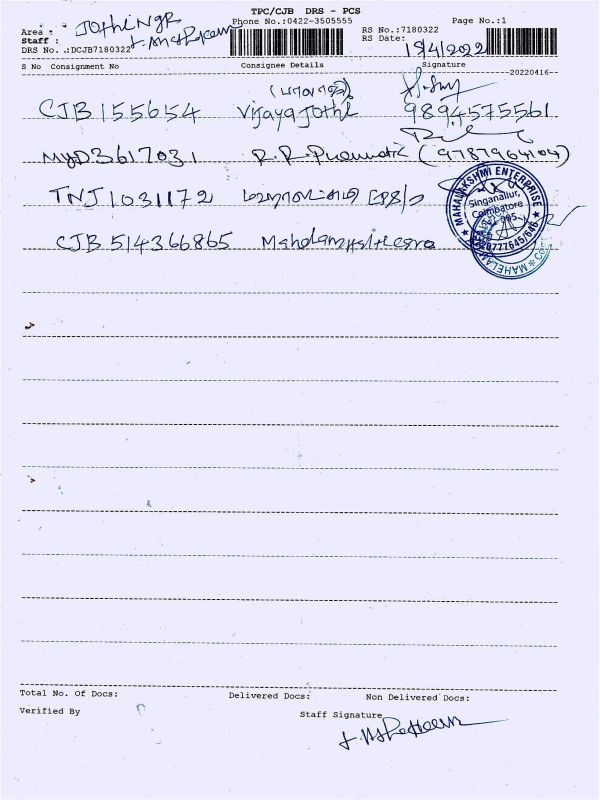 TPC/CJB DRS - PCS
Phone No.:0422-3505555
Page No.:1
Area : JothiNGR
Staff :
DRS No. .:DCJB7180322
RS No.:7180322
RS Date: 18/4/2022
S No Consignment No Consignee Details Signature
--20220416--
CJB 155654 Vijaya Jothi 9894575561
MYD3617031 R.R.Pneumatic (9787964104)
TNJ1031172
CJB 514366865
MAHALAKSHMI ENTERPRISE
Singanallur,
Coimbatore
Total No. Of Docs: Delivered Docs: Non Delivered Docs:
Verified By
Staff Signature